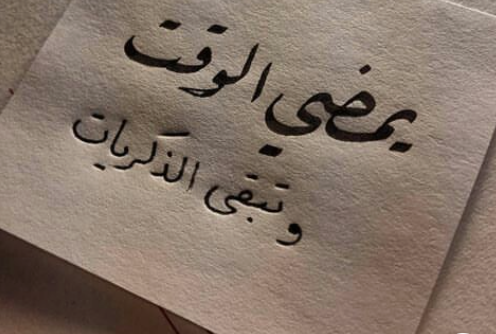 يمضي الوقت
وتبقى الذكريات